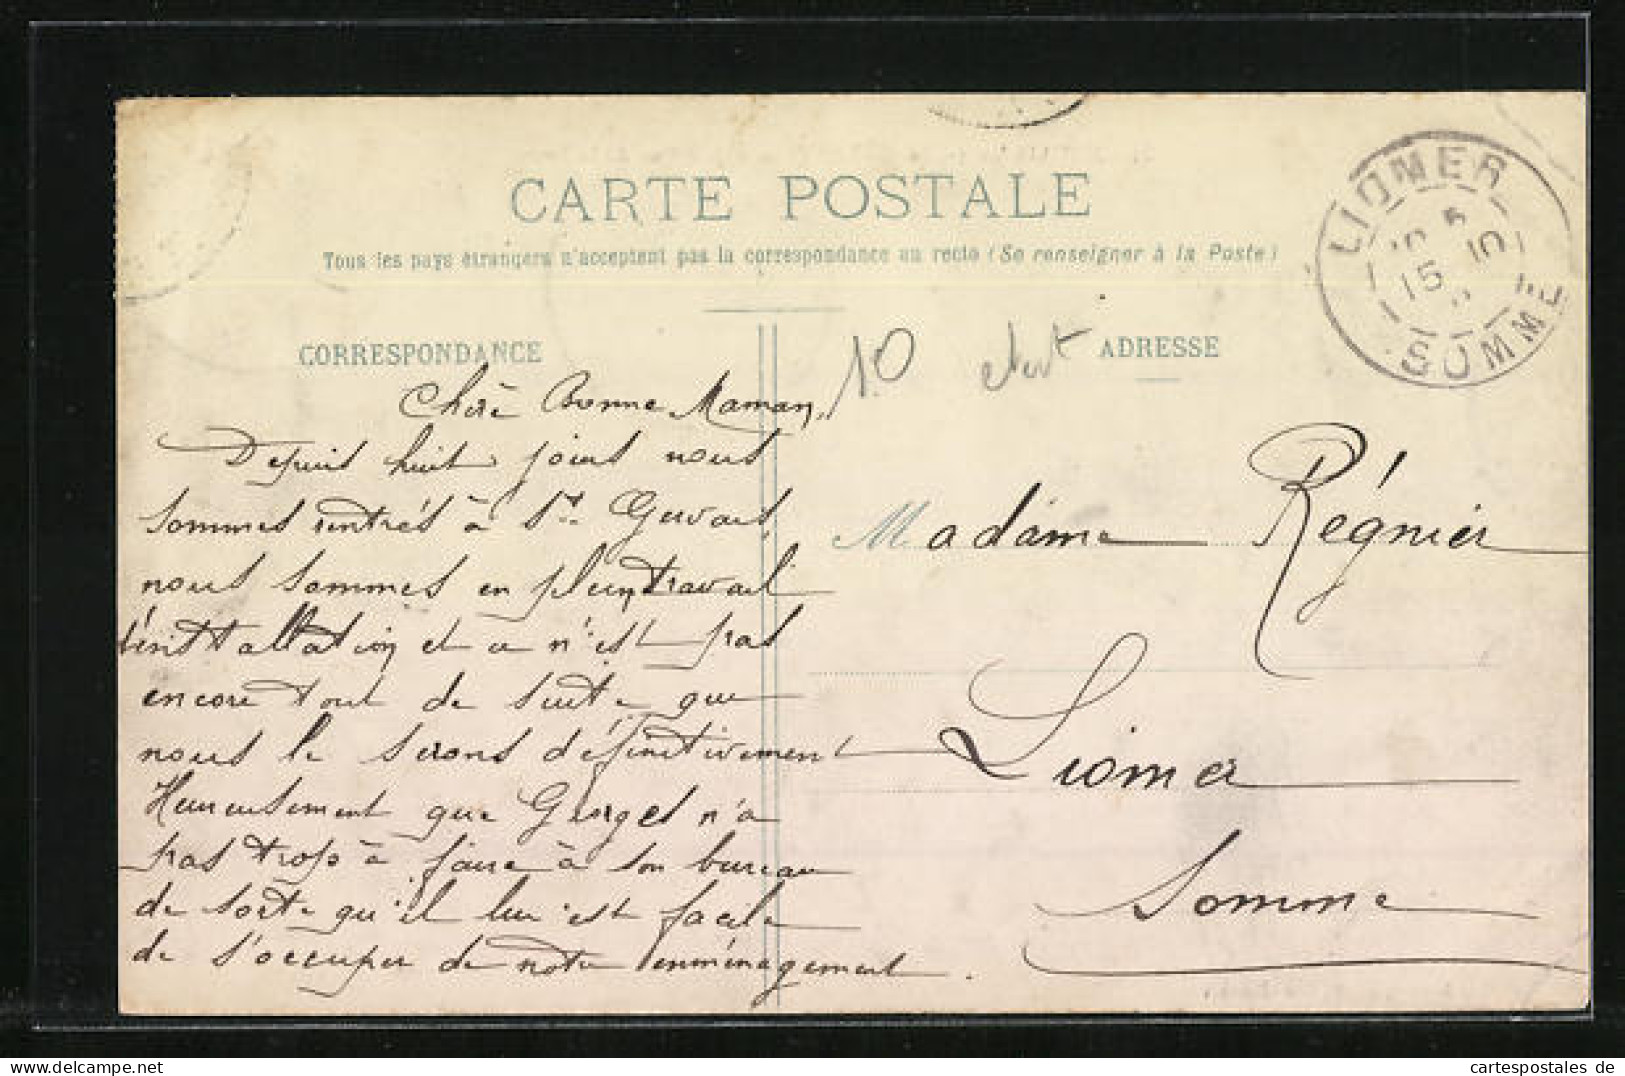 CARTE POSTALE
Tous les pays étrangers n'acceptent pas la correspondance au recto (Se renseigner à la Poste)
CORRESPONDANCE
ADRESSE
10
LIOMER
15 10
SOMME
Chère Bonne Maman,
Depuis huit jours nous
sommes rentrés à St Gervais,
nous sommes en plein travail
d'installation et ce n'est pas
encore tout de suite que
nous le serons définitivement
Heureusement que Georges n'a
pas trop à faire à son bureau
de sorte qu'il lui est facile
de s'occuper de notre emménagement.
Madame Régnier
Liomer
Somme
cartespostales de
www.delcampe.net